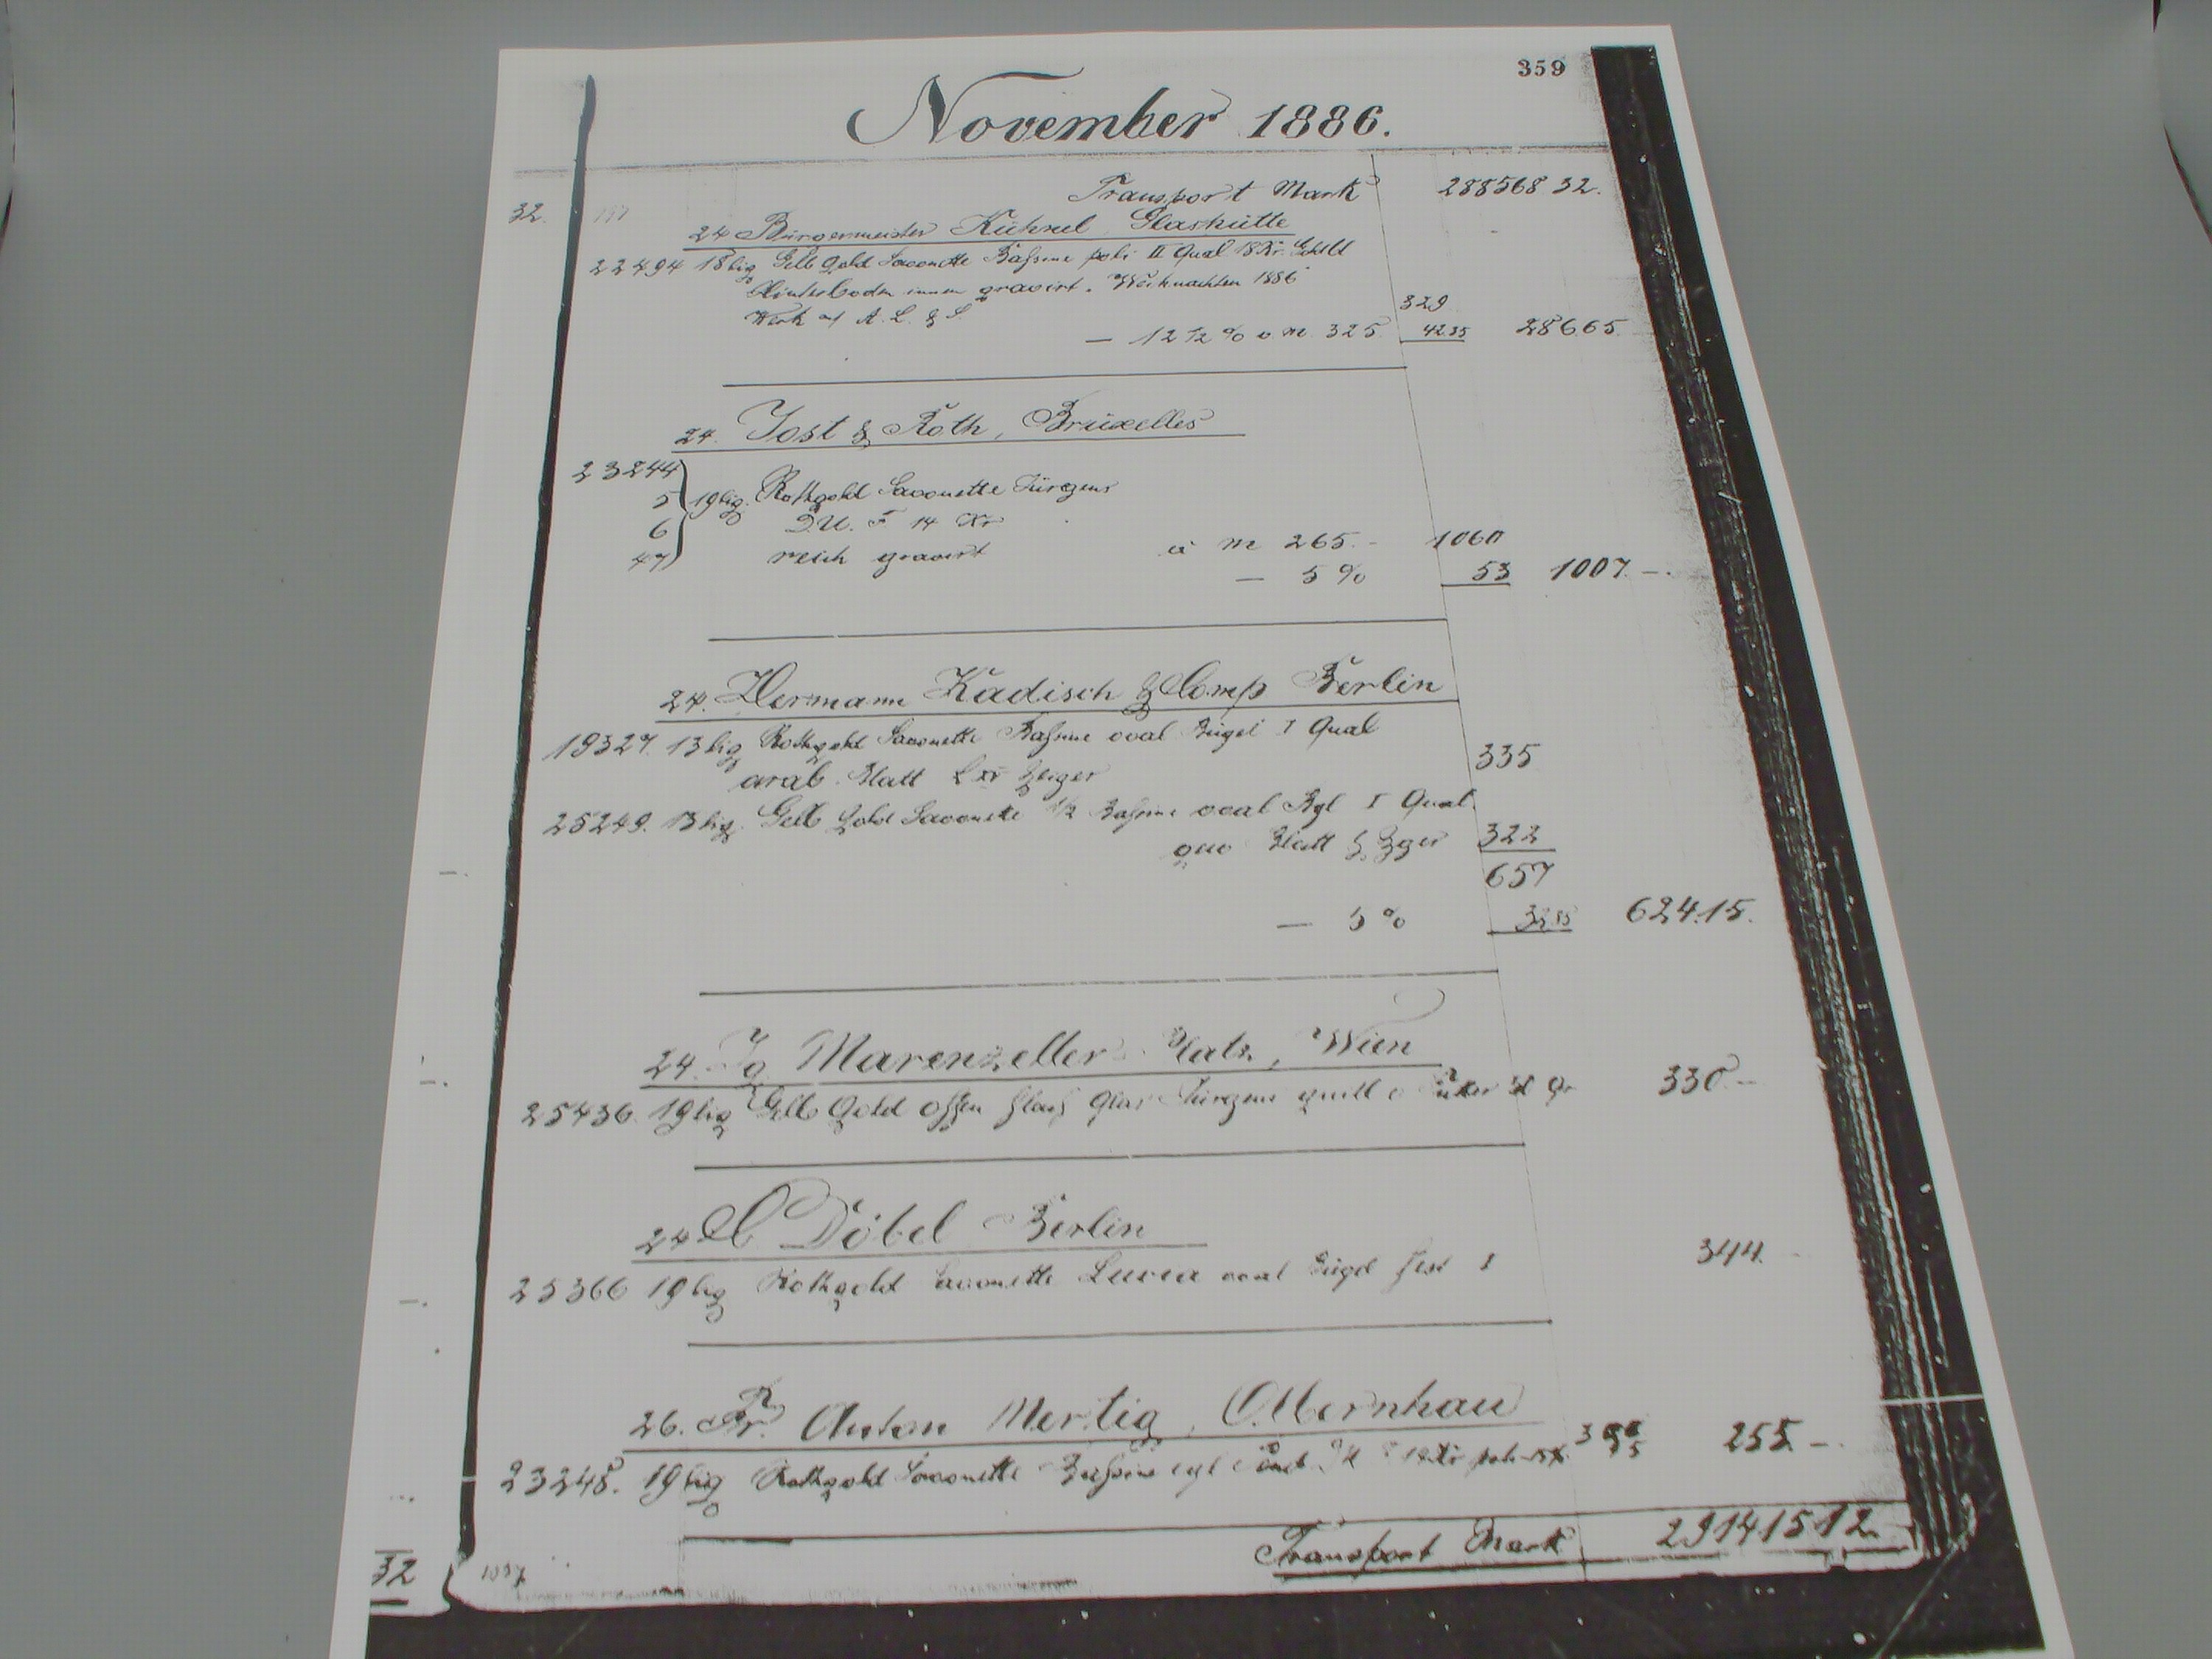 359
November 1886.
Transport Mark 288568 32.
32.
24 Bürgermeister Kühnel Glashütte
22494 18 lig Gelb Gold Savonette Baßine poli II Qual 18 Kr.
Hinterboden innen gravirt. Weihnachten 1886
Werk A. L. & S. 329
— 12 1/2 % v m. 325 42.35 286 65.
24. Jost & Roth, Bruxelles
23244
5 19 lig. Rothgold Savonette Jürgens
6 D.U. F 14 Kr
47 reich gravirt à m 265.- 1060
— 5 % 53 1007.—.
24. Hermann Kadisch & Comp Berlin
19327. 13 lig Rothgold Savonette Baßine oval Bügel I Qual
arab. Blatt L XV Zeiger 335
25249. 13 lig. Gelb Gold Savonette 1/2 Baßine oval Bgl I Qual
Blatt & Zger 322
657
— 5 % 32.85 624.15.
24. Ig Marenzeller Wien
25436. 19 lig Gelb Gold offen flach Glas Jürgens 330.—
24 C Döbel Berlin
25366 19 lig Rothgold Savonette Lucia oval Bügel fest I 344.
26. Fr. Anton Mertig, Olbernhau
23248. 19 lig Rothgold Savonette Baßine 255.—.
Transport Mark 291415 12.
32